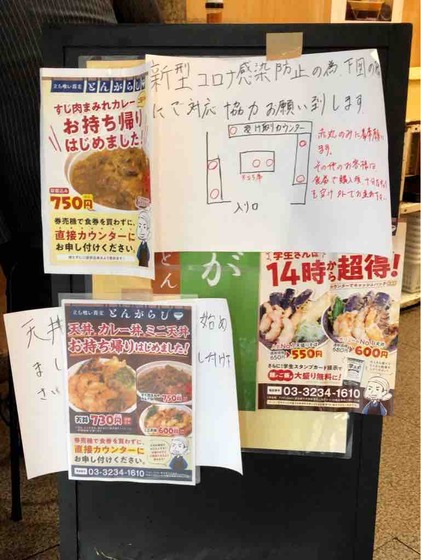 立ち喰い蕎麦 とんがらし
すじ肉まみれカレー
お持ち帰り
はじめました!
750円
券売機で食券を買わずに、
直接カウンターに
お申し付けください。
新型コロナ感染防止の為下図の
にて対応協力お願い致します
受け取りカウンター
入り口
赤丸のみに
その他のお客様は
が
学生さんは
14時から超得!
550円
600円
さらに!学生スタンプカード提示で
大盛り無料に!
03-3234-1610
天丼
始め
まし
し付け
さい
立ち喰い蕎麦 とんがらし
天丼、カレー丼、ミニ天丼
お持ち帰りはじめました!
750円
天丼 730円
600円
券売機で食券を買わずに、
直接カウンターに
お申し付けください。
03-3234-1610